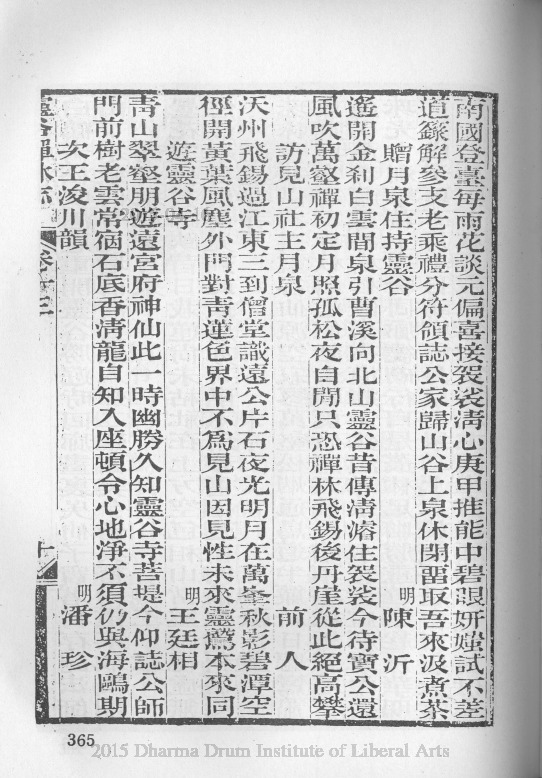 南國登臺每雨花談元偏喜接袈裟清心庚甲推能中碧眼妍媸試不差
道籙解參支老乘禮分符領誌公家歸山谷上泉休閉畱取吾來汲煮茶
贈月泉住持靈谷 明 陳沂
遙開金刹白雲間泉引曹溪向北山靈谷昔傳清濬住袈裟今待寶公還
風吹萬壑禪初定月照孤松夜自閒只恐禪林飛錫後丹崖從此絕高攀
訪見山社主月泉 前人
沃州飛錫過江東三到僧堂識遠公片石夜光明月在萬峯秋影碧潭空
徑開黃葉風塵外門對青蓮色界中不為見山因見性未來靈鷲本來同
遊靈谷寺 明 王廷相
青山翠壑朋遊遠宮府神仙此一時幽勝久知靈谷寺菩堤今仰誌公師
門前樹老雲常宿石底香清龍自知入座頓令心地淨不須仍與海鷗期
次王浚川韻 明 潘珍
靈谷禪林志 卷十三 十
365
2015 Dharma Drum Institute of Liberal Arts